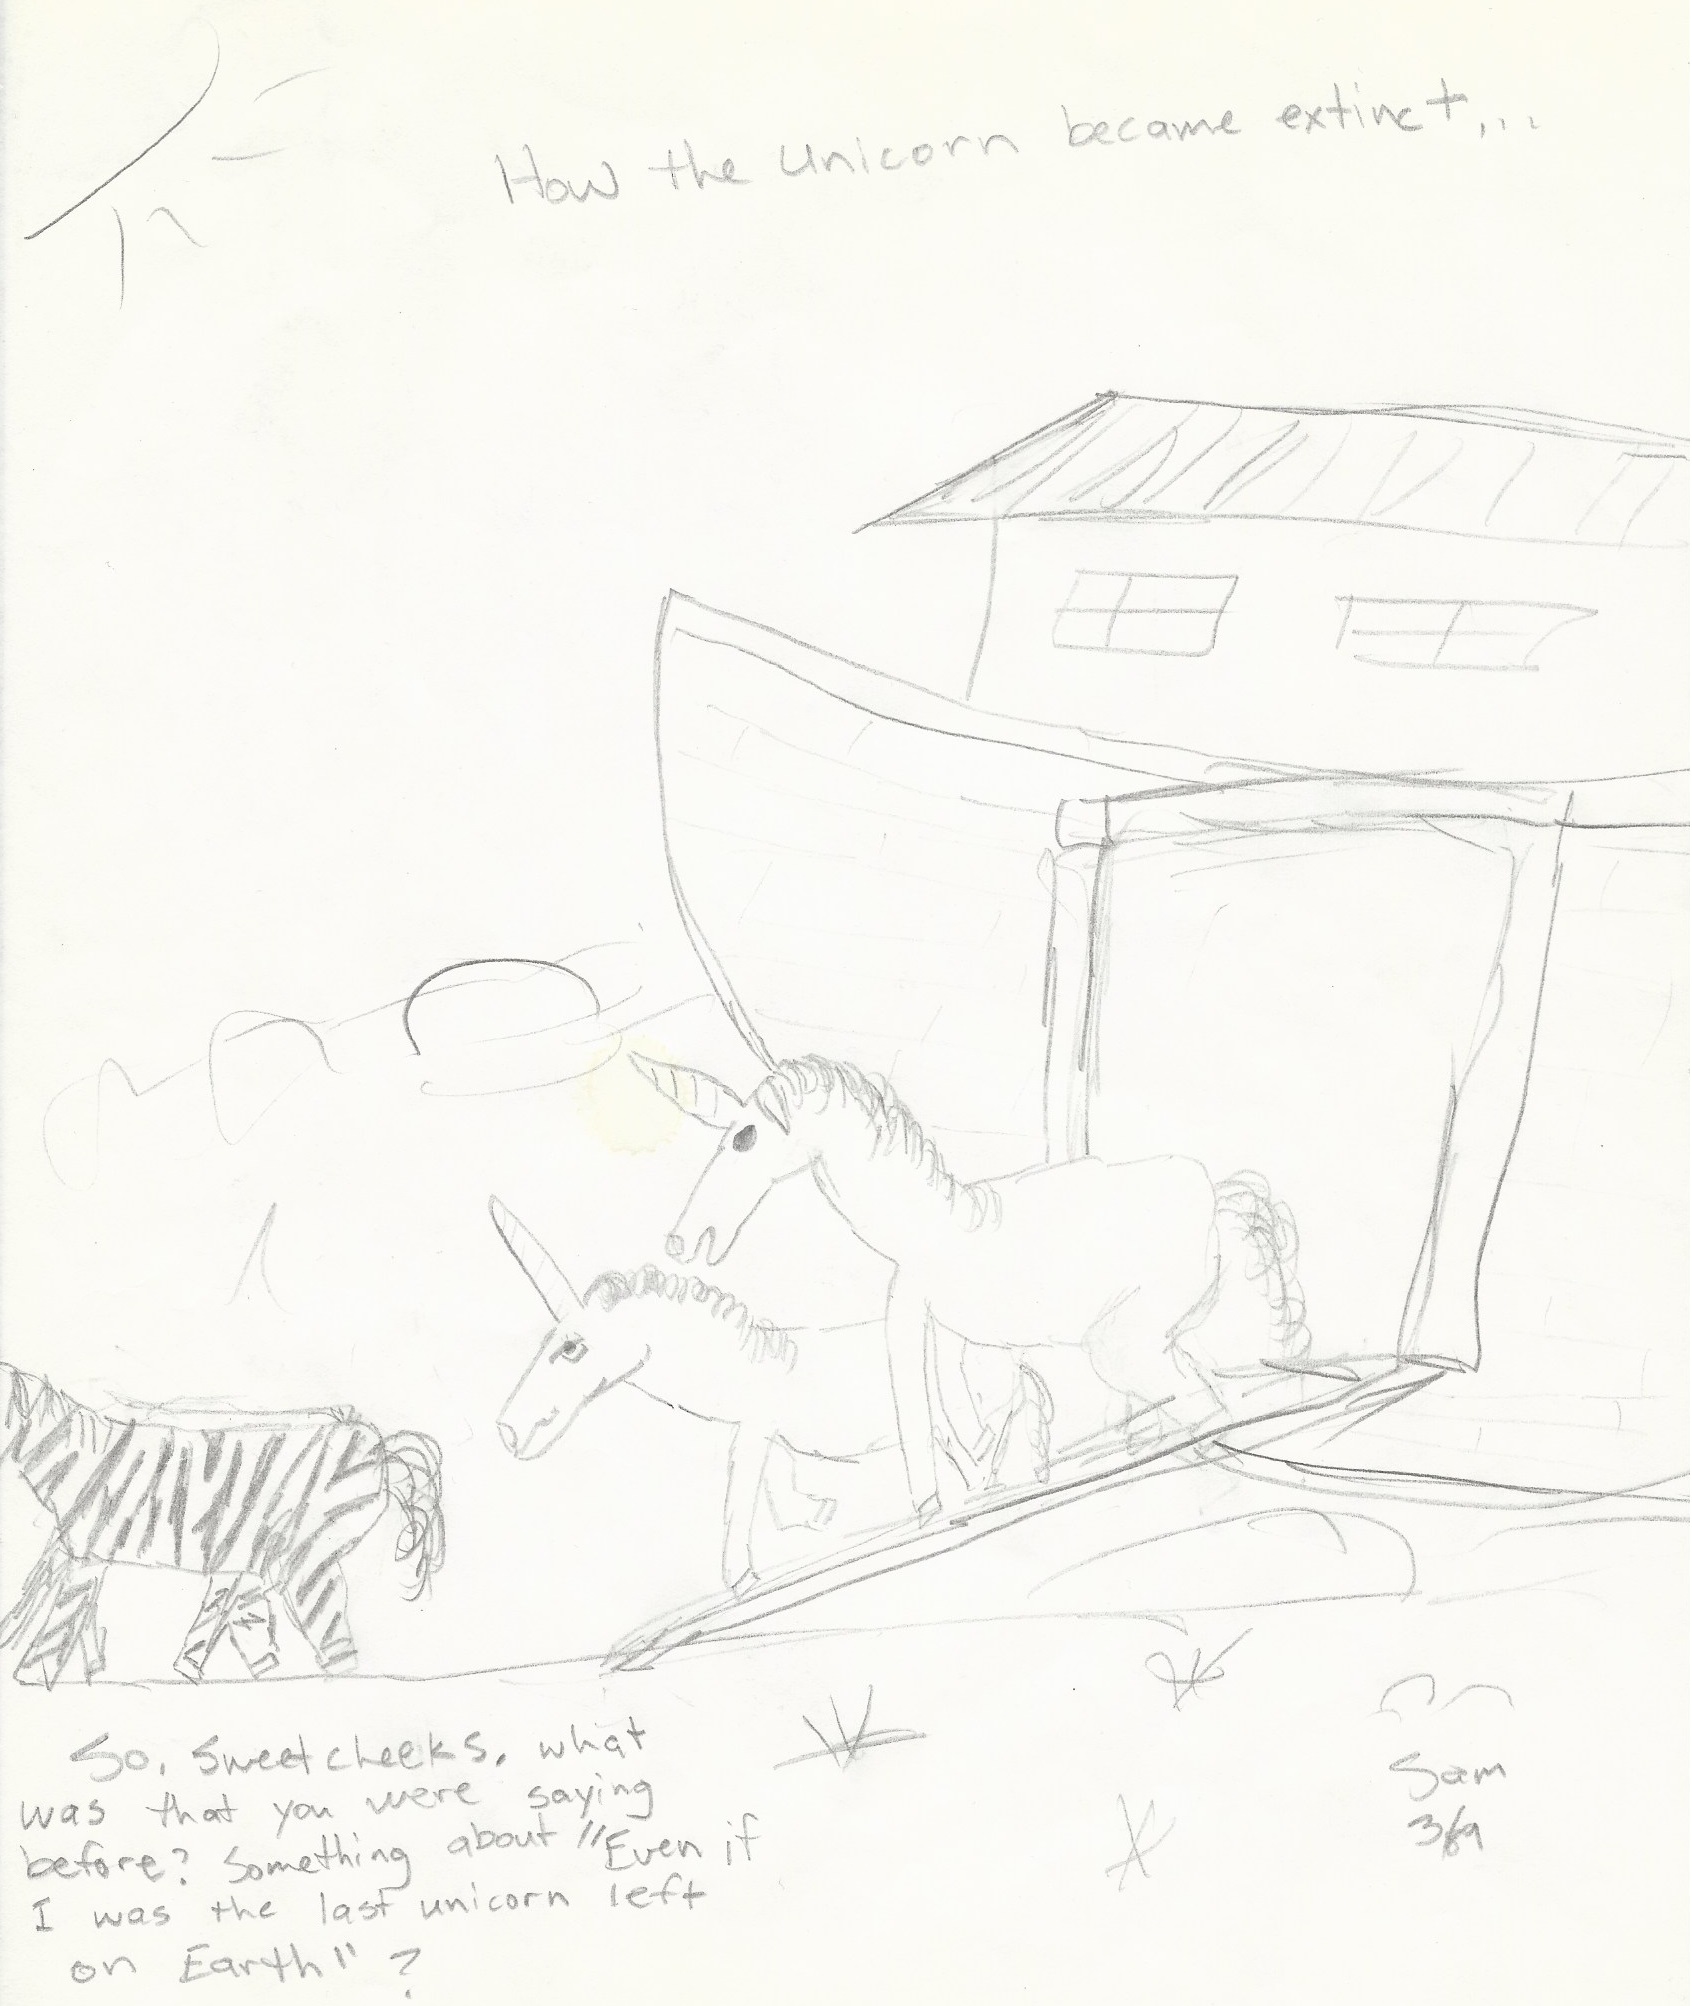 How the unicorn became extinct...
So, Sweetcheeks, what
was that you were saying
before? Something about "Even if
I was the last unicorn left
on Earth"?
Sam
3/69